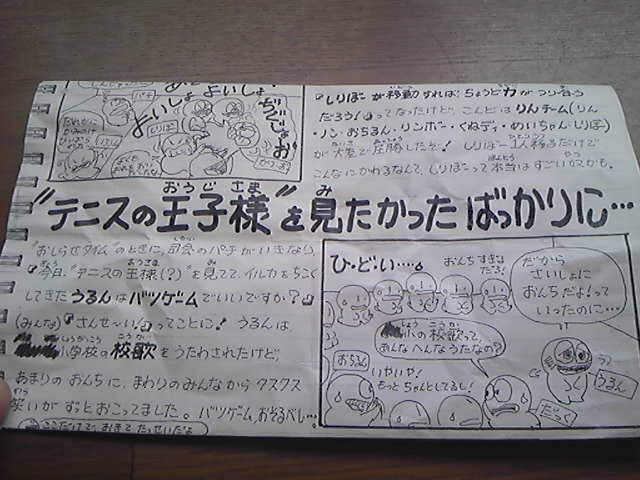 パチ
よいしょ
よいしょ
よいしょ
ぢぐじょお
しりぼー
『しりぼーが移動すれば、ちょうど力がつり合う
だろう!』ってなったけど、こんどはりんチーム(りん
・ノン・おちるん・リンボー・くねディ・めいちゃん・しりぼー)
が大差で圧勝したぞ! しりぼー1人移るだけで
こんなにかわるなんて、しりぼーって本当はすごい奴かも。
おうじさま
み
"テニスの王子様"を見たかったばっかりに…
"おしらせタイム"のときに、司会のパチがいきなり、
『今日、"テニスの王様(?)"を見てて、イルカをちこく
してきたうるんはバツゲームでいいですか?』
(みんな)『さんせ〜い!』ってことに! うるんは、
小学校の校歌をうたわされたけど、
あまりのおんちに、まわりのみんなからクスクス
笑いがずっとおこってました。バツゲーム、おそるべし…。
ひ・ど・い・・・・
おんちすぎる
だろ!
だから
さいしょに
おんちだよ!って
いったのに…
小の校歌って
あんなへんなうたなの?
おちるん
いやいや!
もっとちゃんとしてるし!
うるん
だっく